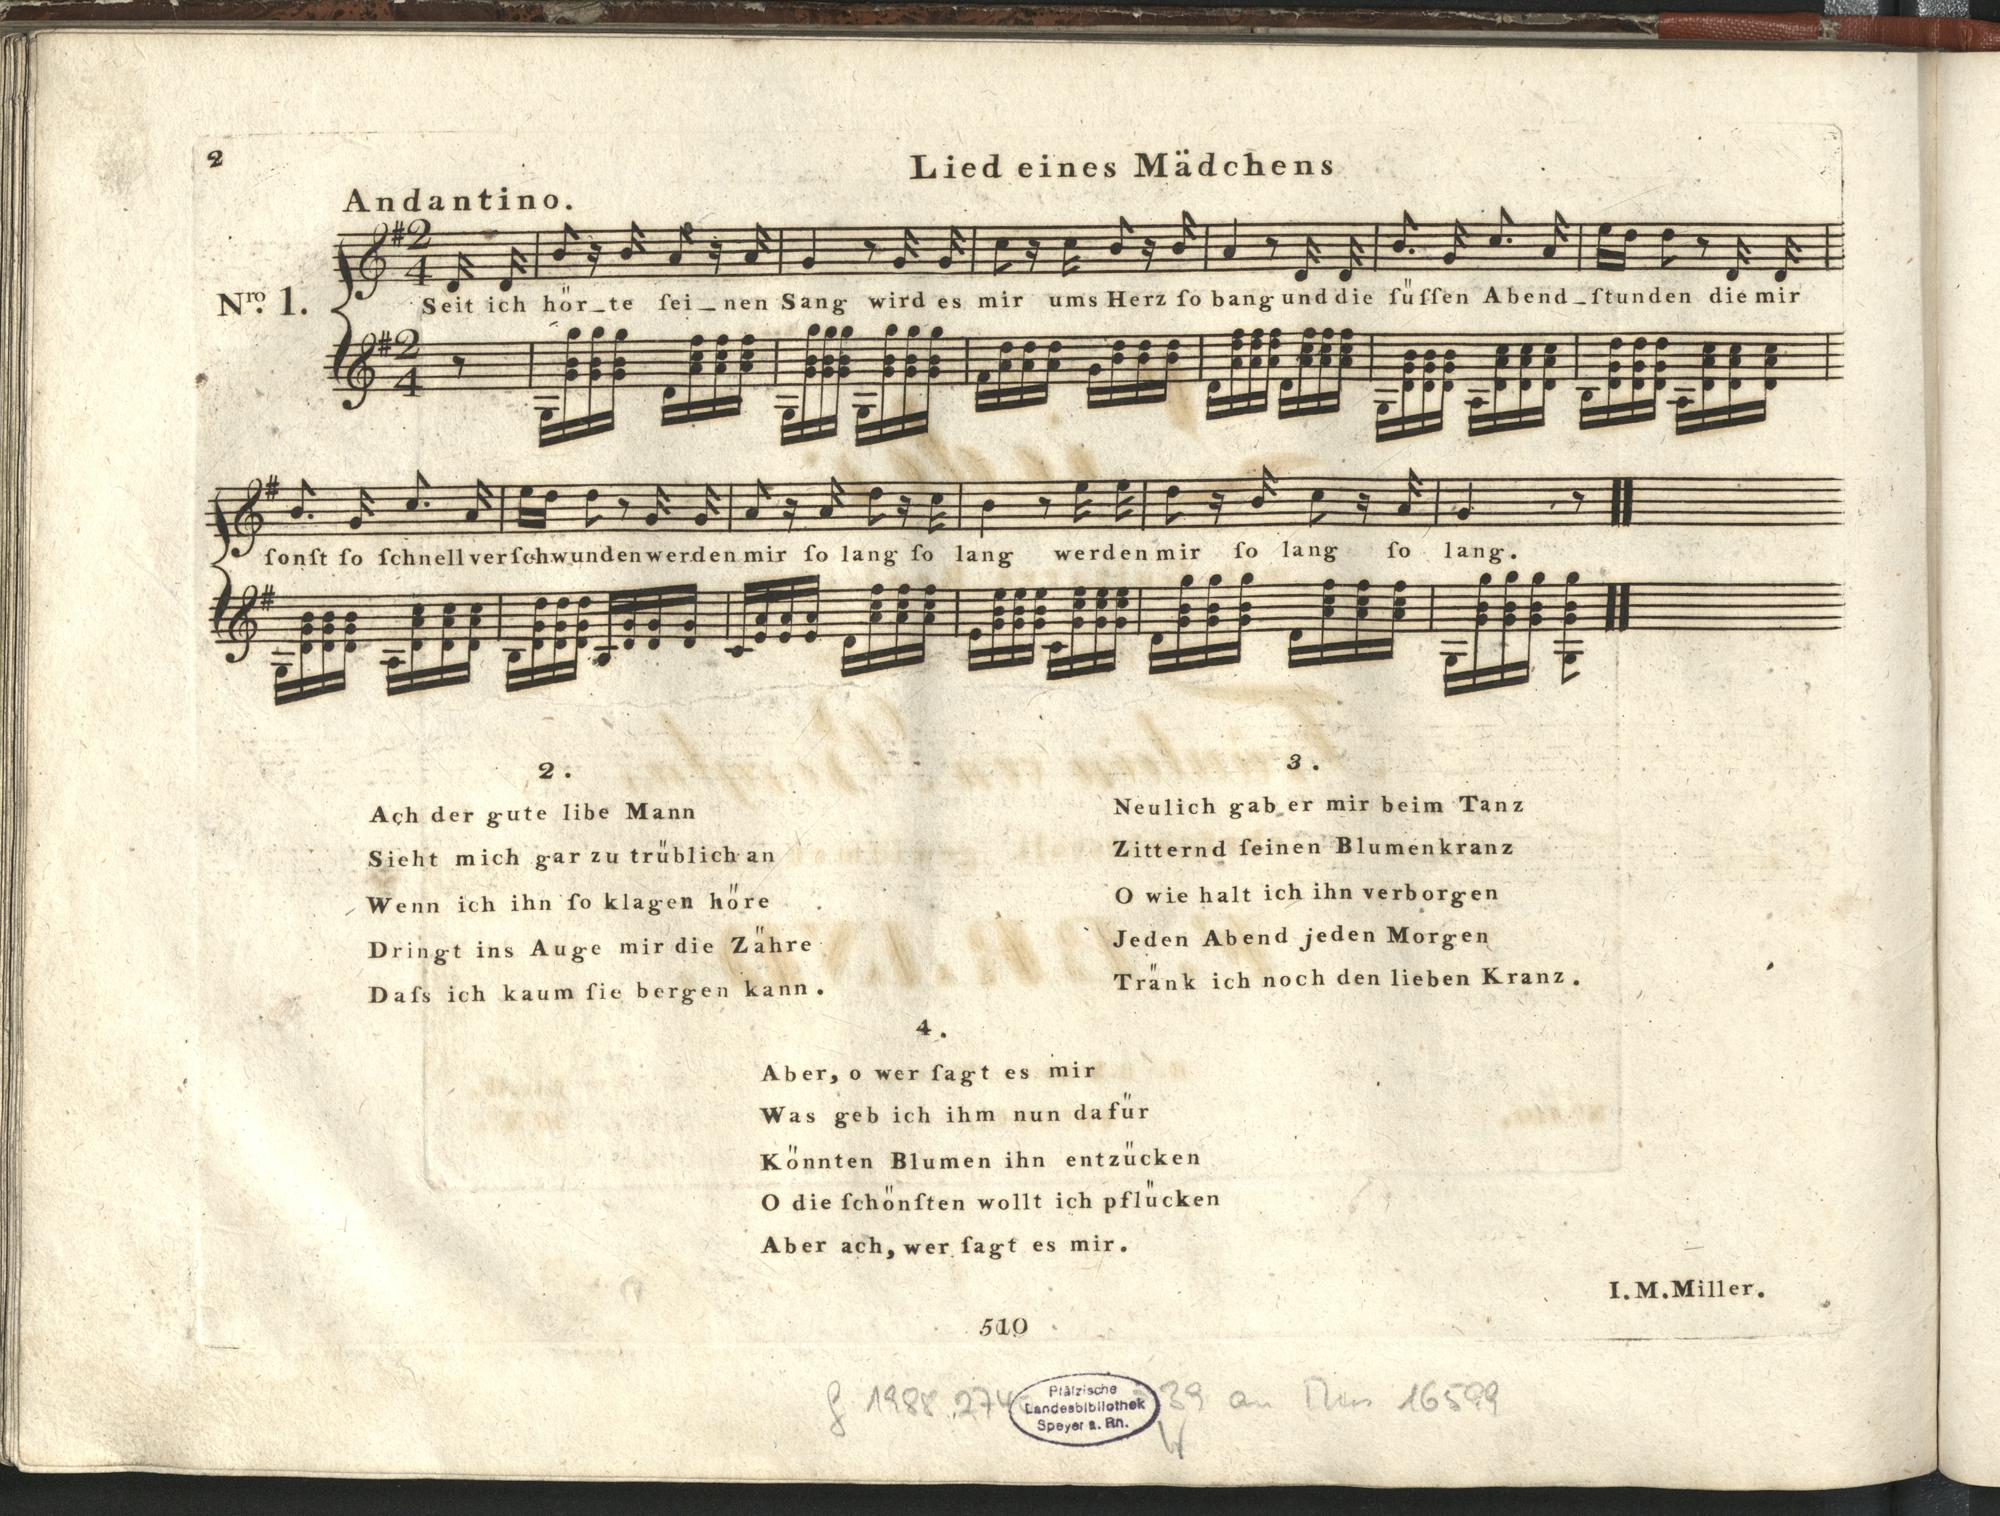 2
Lied eines Mädchens
Andantino.
Nro. 1.
Seit ich hör_te ſei_nen Sang wird es mir ums Herz ſo bang und die ſüſſen Abend_ſtunden die mir
ſonſt ſo ſchnell verſchwunden werden mir ſo lang ſo lang werden mir ſo lang ſo lang.
2.
Ach der gute libe Mann
Sieht mich gar zu trüblich an
Wenn ich ihn ſo klagen höre
Dringt ins Auge mir die Zähre
Daſs ich kaum ſie bergen kann.
3.
Neulich gab er mir beim Tanz
Zitternd ſeinen Blumenkranz
O wie halt ich ihn verborgen
Jeden Abend jeden Morgen
Tränk ich noch den lieben Kranz.
4.
Aber, o wer ſagt es mir
Was geb ich ihm nun dafür
Könnten Blumen ihn entzücken
O die ſchönſten wollt ich pflücken
Aber ach, wer ſagt es mir.
I. M. Miller.
510
1988 39 an Mus 16599
Pfälzische
Landesbibliothek
Speyer a. Rh.